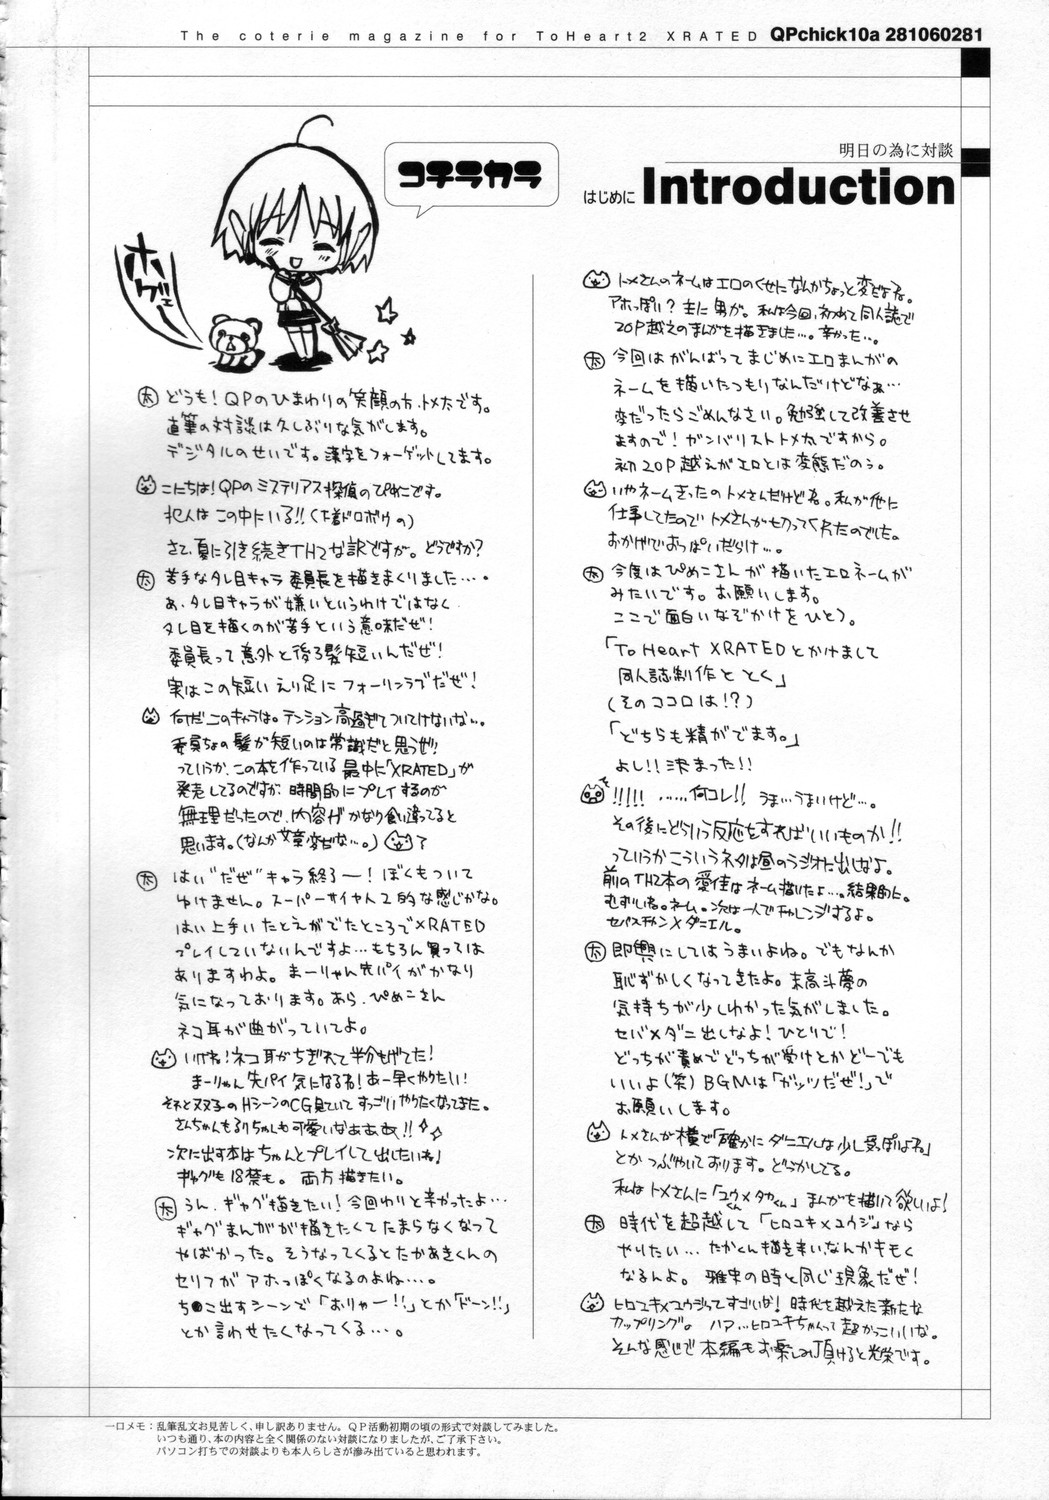 The coterie magazine for ToHeart2 XRATED QPchick10a 281060281
明日の為に対談
はじめに Introduction
コチラカラ
ホゲェー
太 どうも！QPのひまわりの笑顔の方、トメ太です。
直筆の対談は久しぶりな気がします。
デジタルのせいです。漢字をフォーゲットしてます。
こにちは！QPのミステリアス探偵のぴめこです。
犯人はこの中にいる!!(下着ドロボウの)
さて、夏に引き続きTH2な訳ですが。どうですか？
太 苦手なタレ目キャラ委員長を描きまくりました・・・。
あ、タレ目キャラが嫌いというわけではなく
タレ目を描くのが苦手という意味だぜ！
委員長って意外と後ろ髪短いんだぜ！
実はこの短いえり足にフォーリンラブだぜ！
何だこのキャラは。テンション高過ぎてついてけないな・・。
委員ちょの髪が短いのは常識だと思うぜ!
っていうか、この本を作っている最中に「XRATED」が
発売してるのですが時間的にプレイするのが
無理だったので、内容がかなり食い違ってると
思います。(なんか文章変だな・・・。)
太 はい"だぜ"キャラ終了ー！ぼくもついて
ゆけません。スーパーサイヤ人2的な感じかな。
はい上手いたとえがでたところでXRATED
プレイしていないんですよ・・・もちろん買っては
ありますわよ。まーりゃん先パイがかなり
気になっております。あら、ぴめこさん
ネコ耳が曲がっていてよ。
いけね！ネコ耳がちぎれて半分もげてた！
まーりゃん先パイ気になるね！あー早くやりたい！
それと双子のHシーンのCG見ていてすっごいやりたくなってきた。
さんちゃんもるりちゃんも可愛いなぁぁぁぁ!!
次に出す本はちゃんとプレイして出したいね！
ギャグも18禁も。両方描きたい。
太 うん、ギャグ描きたい！今回わりと辛かったよ・・・
ギャグまんがが描きたくてたまらなくなって
やばかった。そうなってくるとたかあきくんの
セリフがアホっぽくなるのよね・・・。
ち●こ出すシーンで「おりゃー!!」とか「ドーン!!」
とか言わせたくなってくる・・・。
トメさんのネームはエロのくせになんかちょっと変だよね。
アホっぽい？主に男が。私は今回、初めて同人誌で
20P越えのまんがを描きました・・・。辛かった・・。
太 今回はがんばってまじめにエロまんがの
ネームを描いたつもりなんだけどなぁ・・・
変だったらごめんなさい。勉強して改善させ
ますので！ガンバリストトメ太ですから。
初20P越えがエロとは変態だのぅ。
いやネームきったのトメさんだけどね。私が他に
仕事してたのでトメさんが切ってくれたのでした。
おかげでおっぱいだらけ・・・。
太 今度はぴめこさんが描いたエロネームが
みたいです。お願いします。
ここで面白いなぞかけをひとつ。
「To Heart XRATEDとかけまして
同人誌制作ととく」
(そのココロは!?)
「どちらも精がでます。」
よし!!決まった!!
!!!!! ……何コレ!! うま・・・うまいけど・・・。
その後にどういう反応をすればいいものか!!
っていうかこういうネタは昼のラジオに出しなよ。
前のTH2本の愛佳はネーム描いたよ・・・。結果的に。
むずいね。ネーム。次は一人でチャレンジするよ。
セバスチャン×ダニエル。
太 即興にしてはうまいよね。でもなんか
恥ずかしくなってきたよ。末高斗夢の
気持ちが少しわかった気がしました。
セバ×ダニ出しなよ！ひとりで！
どっちが責めでどっちが受けとかどーでも
いいよ(笑) BGMは「ガッツだぜ！」で
お願いします。
トメさんが横で「確かにダニエルは少し受っぽいよね」
とかつぶやいております。どうかしてる。
私はトメさんに「ユウくん×タカくん」まんがを描いて欲しいよ！
太 時代を超越して「ヒロユキ×ユウジ」なら
やりたい・・・たかくん描き辛い、なんかキモく
なるんよ。雅史の時と同じ現象だぜ！
ヒロユキ×ユウジってすごいな！時代を越えた新たな
カップリング。ハァ・・・ヒロユキちゃんって超かっこいいな。
そんな感じで本編もお楽しみ頂けると光栄です。
一口メモ：乱筆乱文お見苦しく、申し訳ありません。QP活動初期の頃の形式で対談してみました。
いつも通り、本の内容と全く関係のない対談になりましたが、ご了承下さい。
パソコン打ちでの対談よりも本人らしさが滲み出ていると思われます。